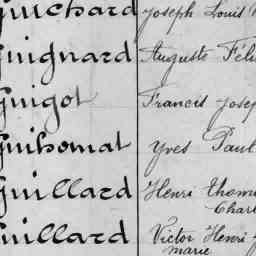 Guichard Joseph Louis
Guignard Auguste Féli
Guigot Francis Josep
Guihomat Yves Paul
Guillard Henri Thoma
Charl
Guillard Victor Henri
Marie